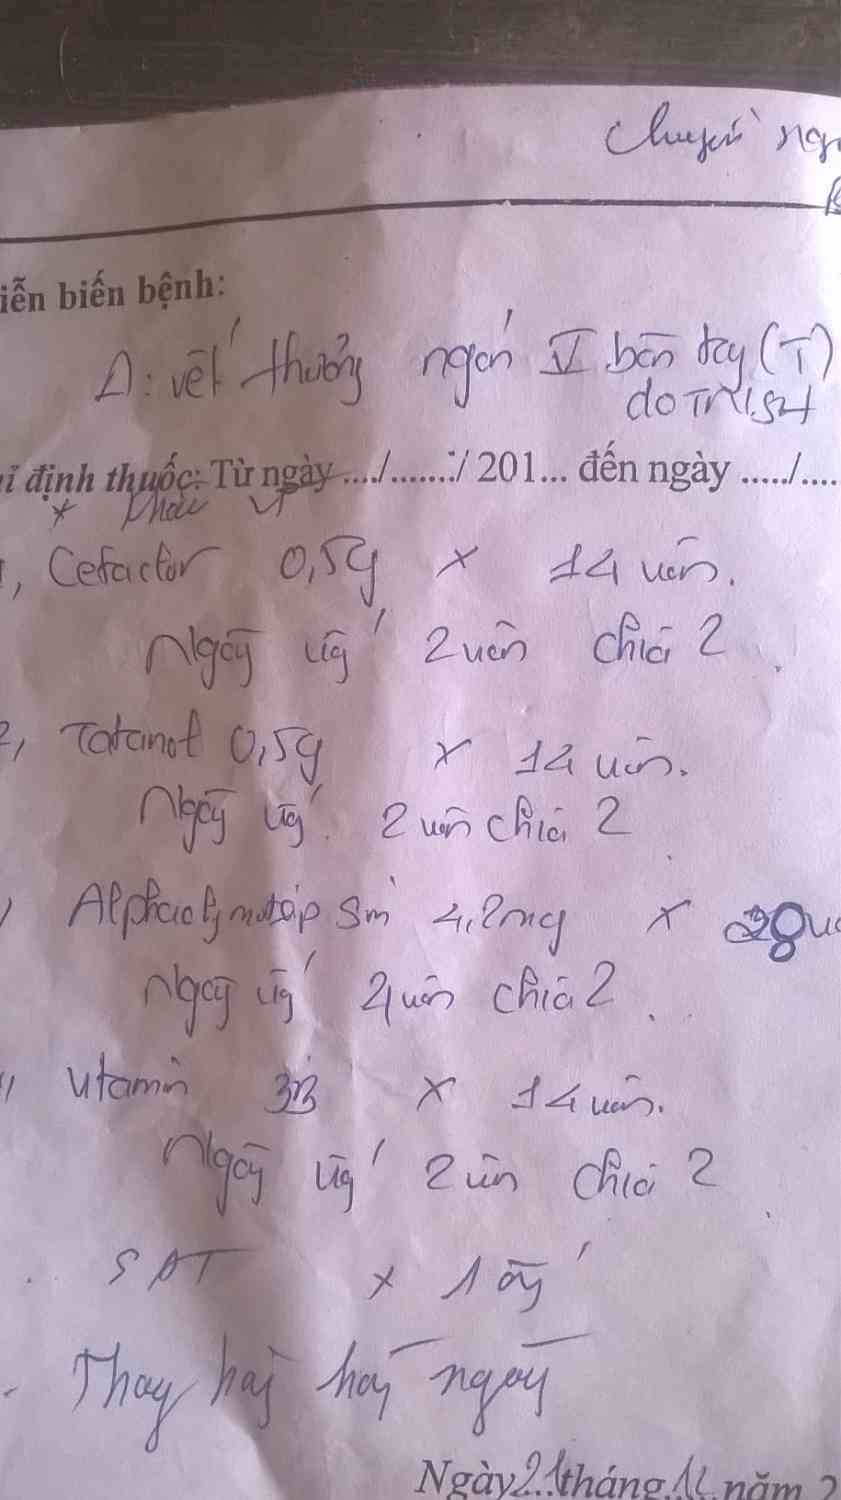 Chuyển
iễn biến bệnh:
Δ: vết thương ngón V bàn tay (T)
do TNSH
ỉ định thuốc: Từ ngày .../......./ 201... đến ngày ...../....
*
1, Cefactor 0,5g x 14 viên.
Ngày uống 2 viên chia 2
2, Tatanol 0,5g x 14 viên.
Ngày uống 2 viên chia 2
4,2mg x 28
Ngày uống 4 viên chia 2
Vitamin 3B x 14 viên.
Ngày uống 2 viên chia 2
SAT x 1 ống
Thay hàng ngày
Ngày 21 tháng 12 năm 2